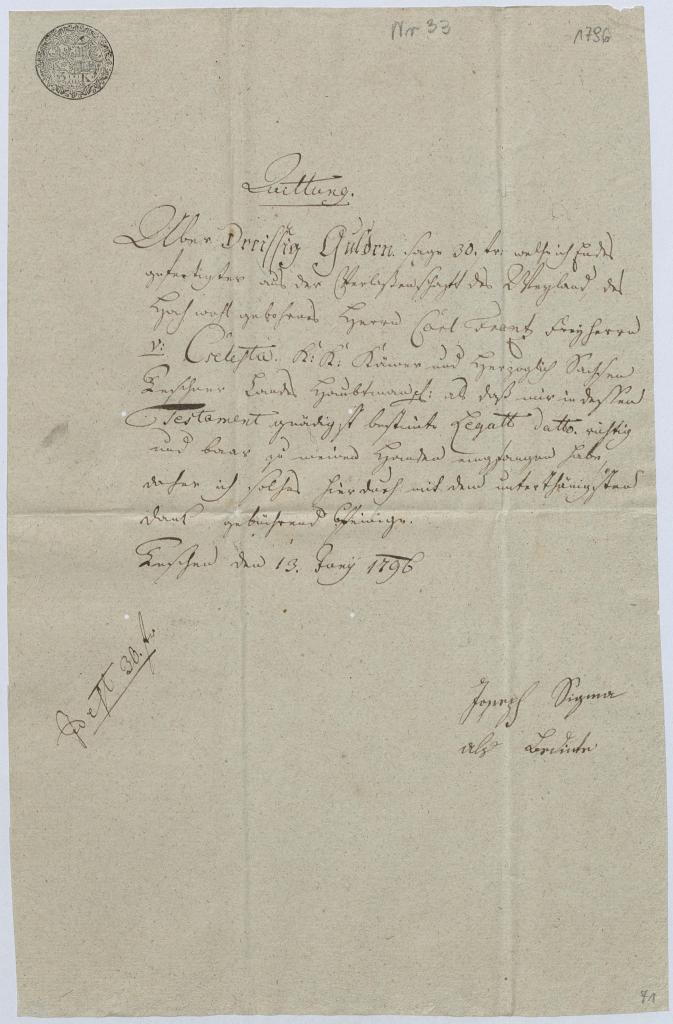 Nr 33
1796
3 K
Quittung.
Uber Dreissig Gulden. sage 30. fr: welche ich Endes
gefertigter aus der Verlaßenschaft des Weyland des
Hoch wohl gebohrnes Herrn Carl Frantz Freyherrn
v: Cselesta. K: K: Kämer und Herzoglich Sachsen
Teschner Landes Haubtman als daß mir in dessen
Testament gnädigst bestimte Legatt datto. richtig
und baar zu meinen Handen empfangen habe,
daher ich solches hierdurch mit dem unterthänigsten
Dank gebührend
Teschen den 13. Juny 1796
Est 30. fr
Joseph Sigma
alß Bediente
71